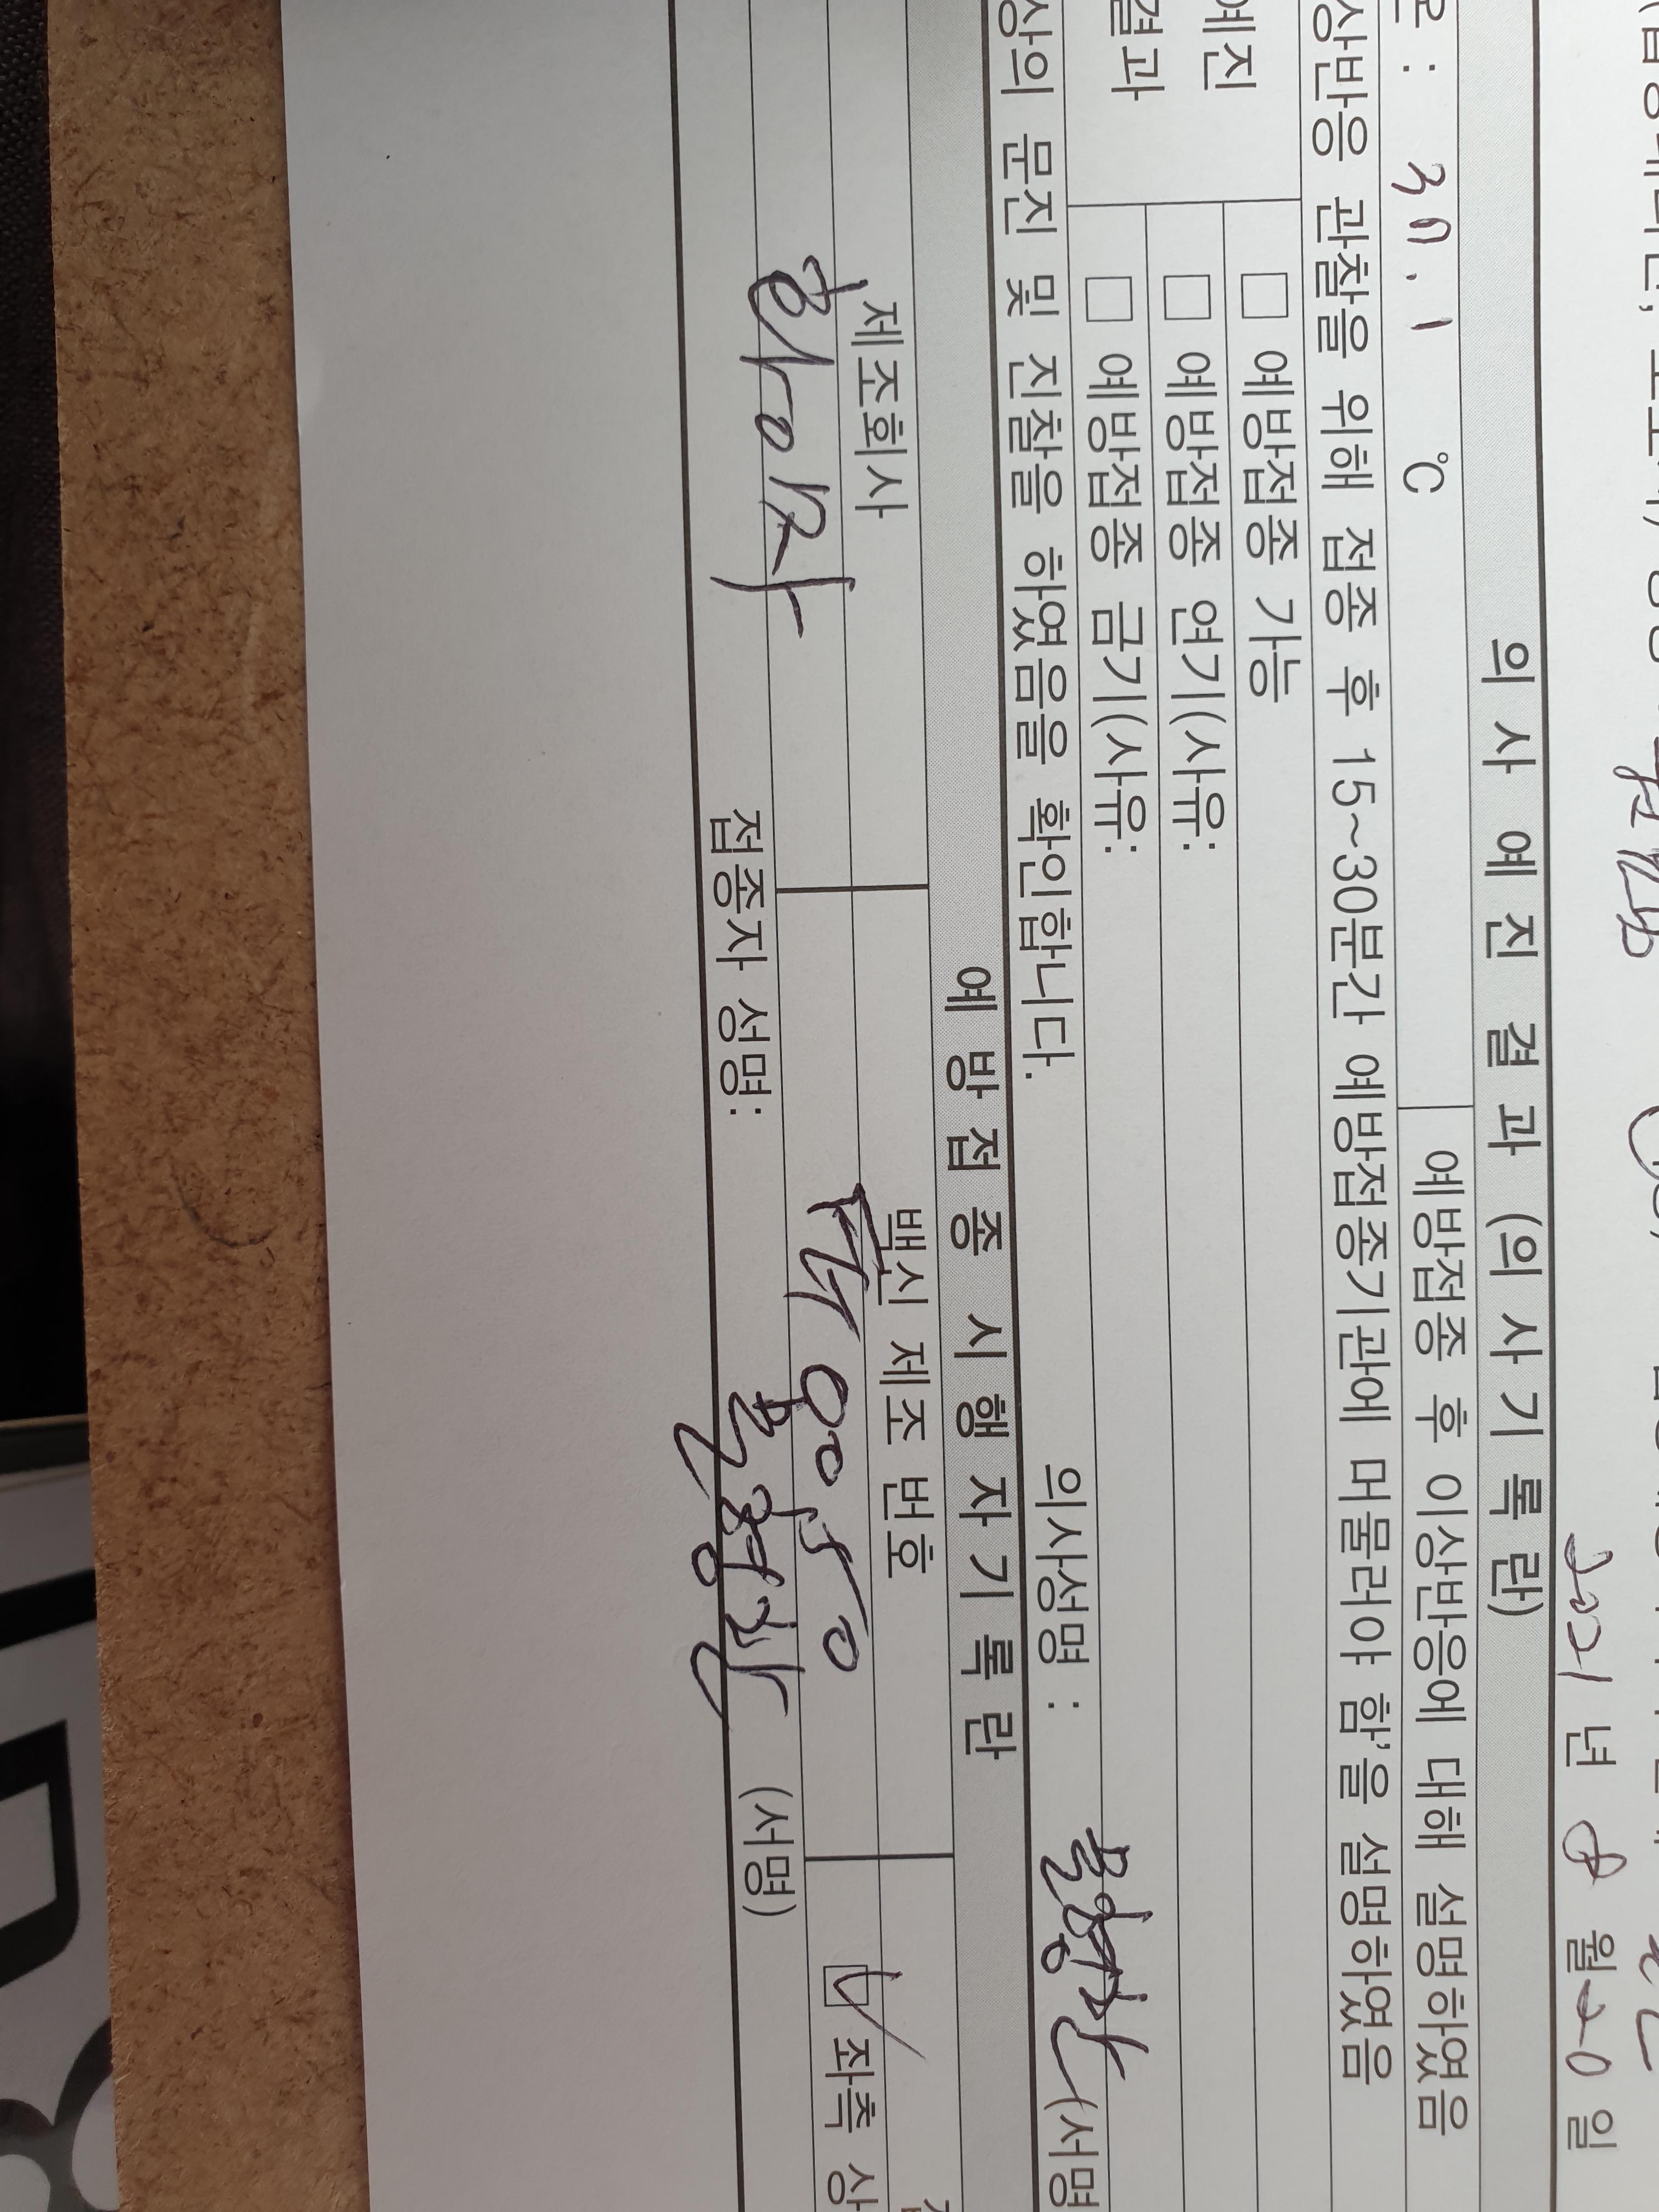 2021 년 8 월 20 일
의 사 예 진 결 과 (의 사 기 록 란)
: 37.1 ℃ 예방접종 후 이상반응에 대해 설명하였음
상반응 관찰을 위해 접종 후 15~30분간 예방접종기관에 머물러야 함'을 설명하였음
예진 □ 예방접종 가능
결과 □ 예방접종 연기(사유:
□ 예방접종 금기(사유:
상의 문진 및 진찰을 하였음을 확인합니다. 의사성명 : (서명
예 방 접 종 시 행 자 기 록 란
제조회사 백신 제조 번호
화이자 ☑ 좌측 상
접종자 성명: (서명)